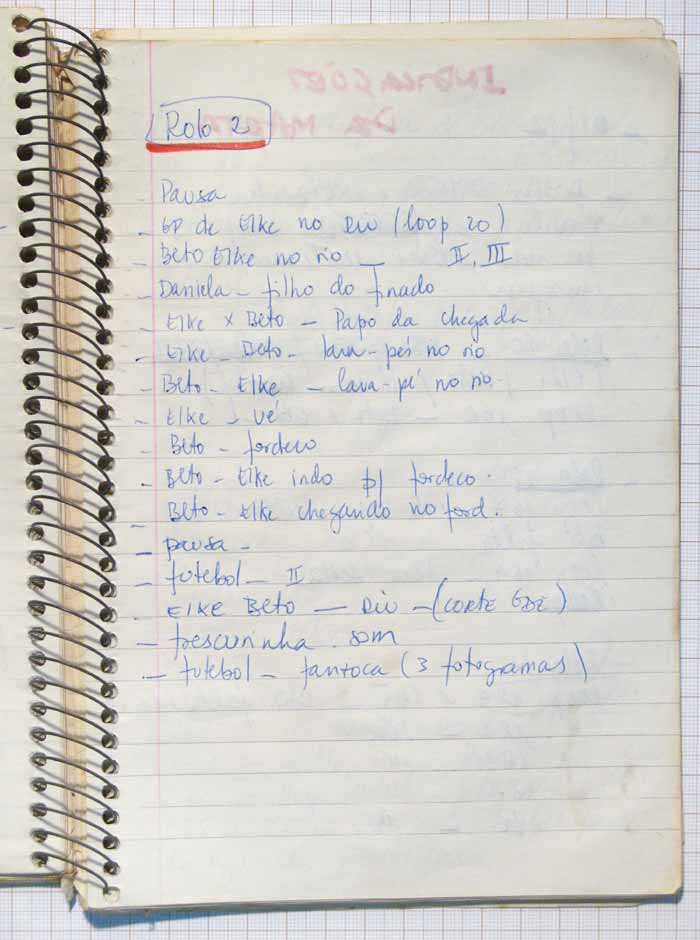 Rolo 2
- Pausa
- GP de Elke no Rio (loop 20)
- Beto Elke no rio — II, III
- Daniela - filho do finado
- Elke x Beto - Papo da chegada
- Elke - Beto - lava-pés no rio
- Beto - Elke - lava-pé no rio.
- Elke - vê
- Beto - fordeco
- Beto - Elke indo p/ fordeco.
- Beto - Elke chegando no ford.
- pausa -
- futebol - II
ELKE BETO — Rio - (CORTE GDE)
- frescurinha. som
- futebol - (3 fotogramas)
INDICAÇÕES
DA